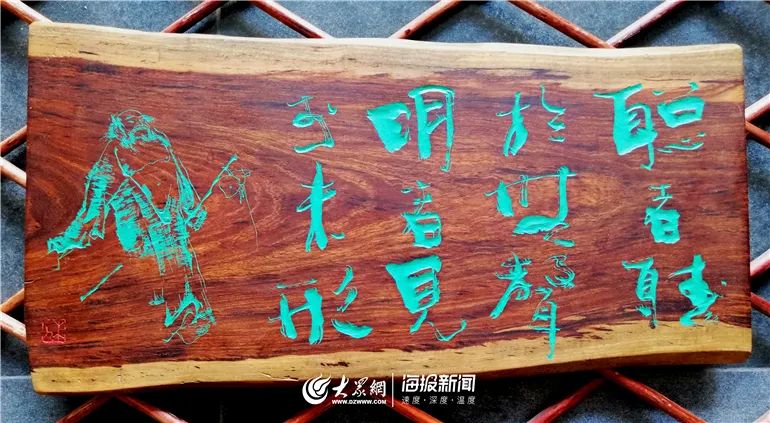 聰者聽
於無聲
明者見
於未形
大眾網 海报新闻
WWW.DZWWW.COM 速度·深度·温度